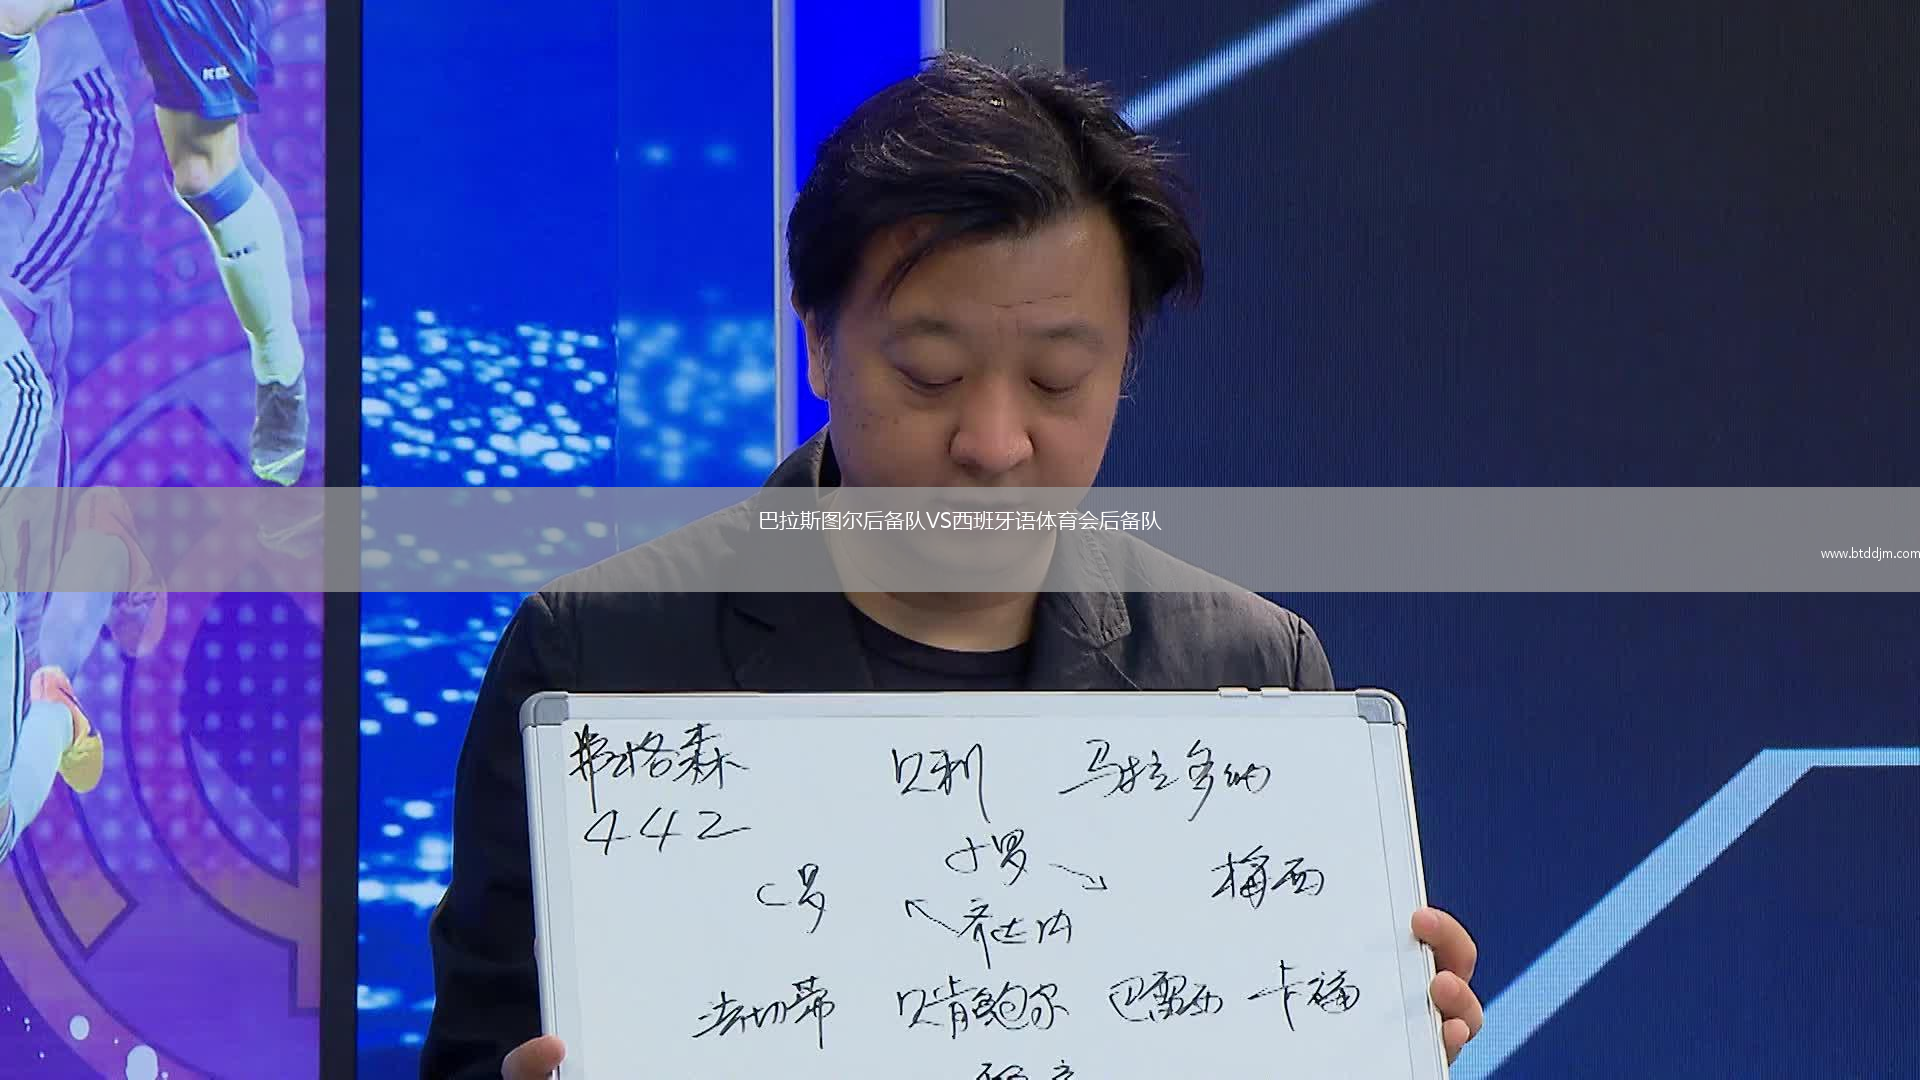 KEL
巴拉斯图尔后备队VS西班牙语体育会后备队
www.btddjm.com
弗格森 贝利 马拉多纳
442
小罗
C罗 梅西
齐达内
法切蒂 贝肯鲍尔 巴雷西 卡福